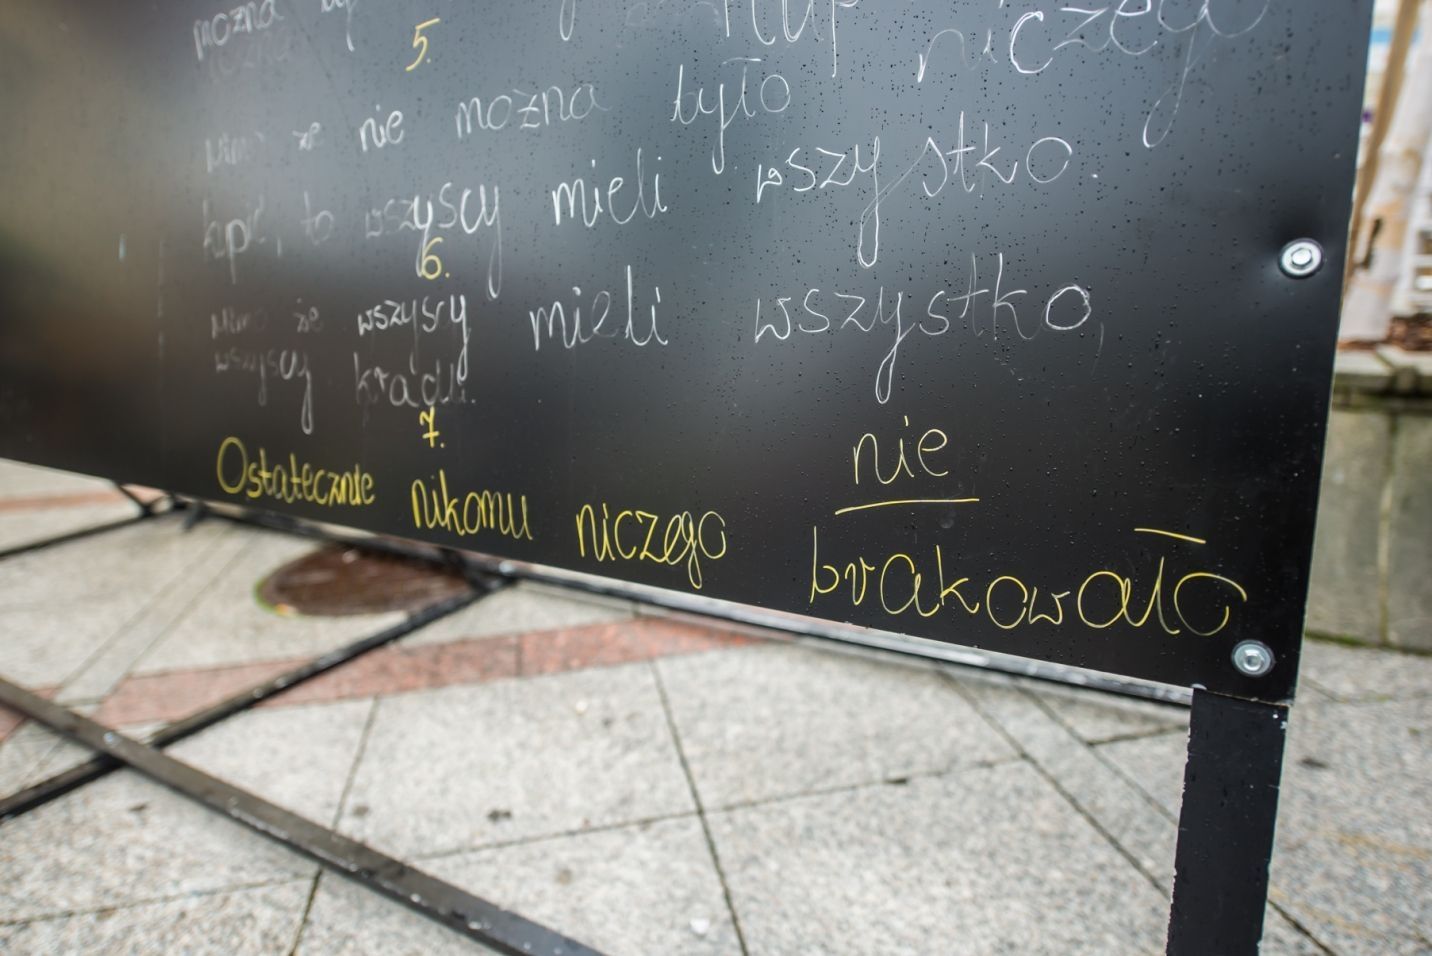 można
5.
Mimo że nie można było niczego
kupić, to wszyscy mieli wszystko.
6.
Mimo że wszyscy mieli wszystko,
wszyscy kradli.
7.
Ostatecznie nikomu niczego nie
brakowało